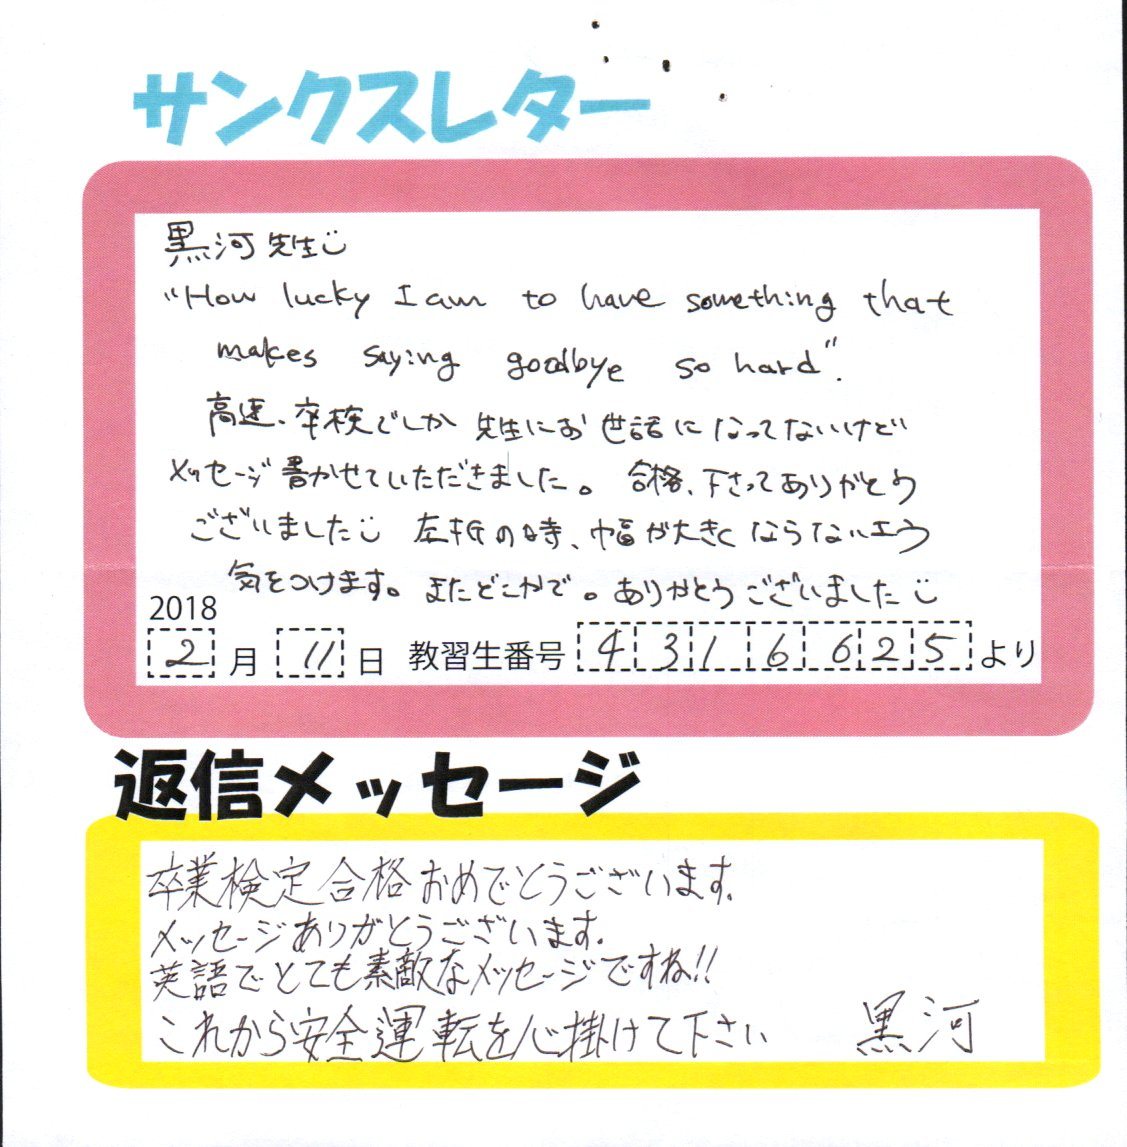 サンクスレター
黒河先生
"How lucky I am to have something that
makes saying goodbye so hard".
高速、卒検でしか 先生にお世話になってないけど
メッセージ書かせていただきました。 合格、下さってありがとう
ございました 左折の時、巾幅が大きくならないよう
気をつけます。またどこかで。ありがとうございました
2018
2月 11日 教習生番号 4316625より
返信メッセージ
卒業検定合格おめでとうございます。
メッセージありがとうございます。
英語でとても素敵なメッセージですね!!
これから安全運転を心掛けて下さい 黒河